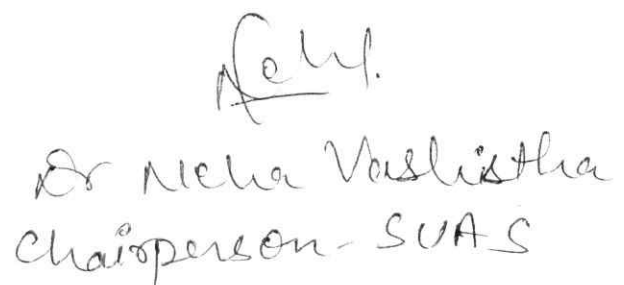 Neha.
Dr Neha Vashistha
Chairperson - SUAS